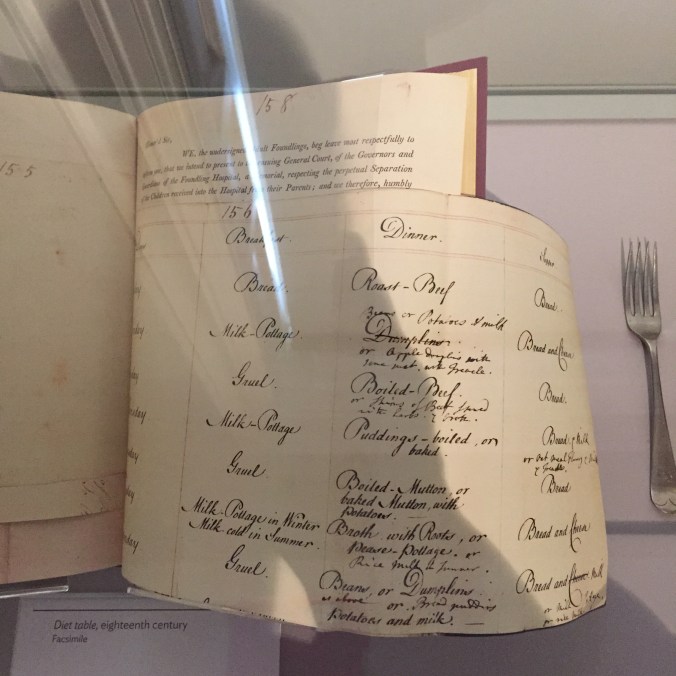 155
158
WE, the undersigned Adult Foundlings, beg leave most respectfully to
inform you, that we intend to present to the ensuing General Court, of the Governors and
Guardians of the Foundling Hospital, a Memorial, respecting the perpetual Separation
of the Children received into the Hospital from their Parents; and we therefore, humbly
156
Breakfast. Dinner. Supper
Bread. Roast-Beef Bread.
day Milk-Pottage Beans or Potatoes & milk
Dumplins. Bread and Cheese
or Apple with
Gruel. Boiled-Beef. Bread.
or of Beef
with herbs & roots.
day Milk-Pottage Puddings-boiled, or Bread & Milk
baked.
Gruel Boiled-Mutton, or Bread
baked Mutton, with
potatoes.
Milk-Pottage in Winter Broth with Roots, or Bread and Cheese
Milk cold in Summer. Pease-Pottage. or
Rice Milk in Summer.
Gruel. Beans, or Dumplins Bread and Cheese Milk
as above or Bread pudding
potatoes and milk.
Diet table, eighteenth century
Facsimile